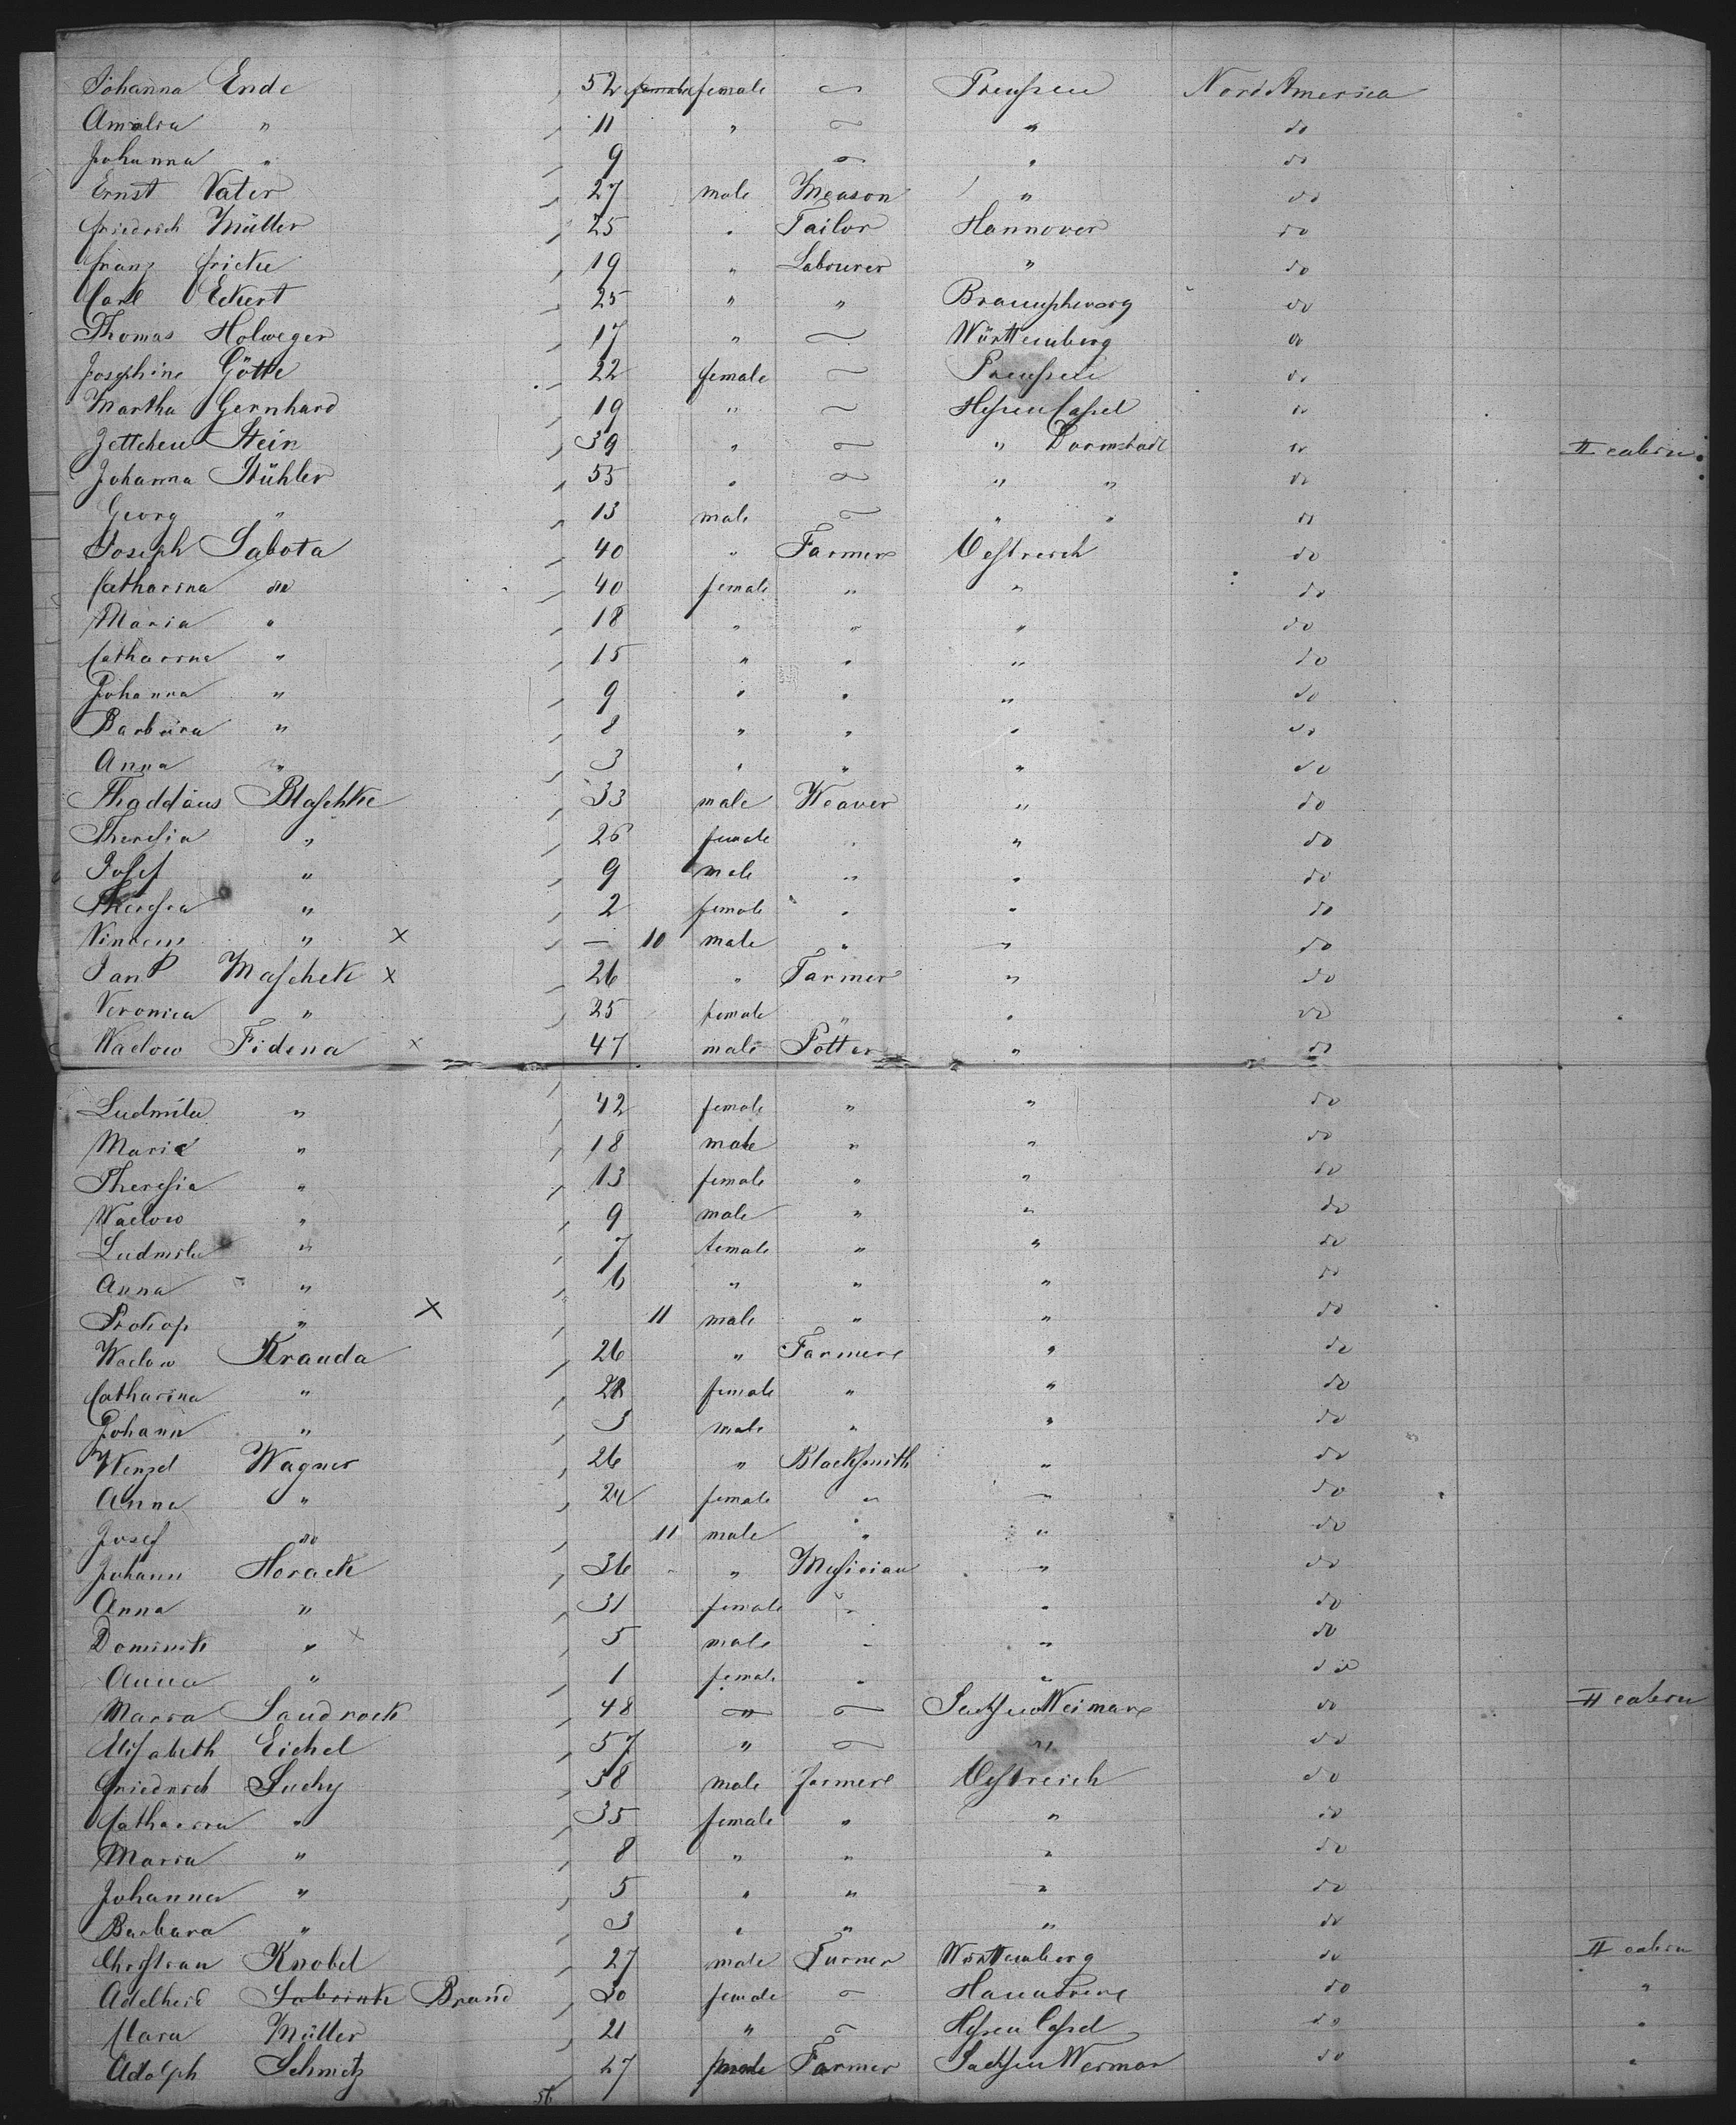 Johanna Ende 52 female female ~ Preußen Nord America
Amalia " 11 " ~ " do
Johanna " 9 ~ " do
Ernst Vater 27 male Meason " do
Friedrich Müller 25 " Tailor Hannover do
Franz Fricke 19 " Labourer " do
Carl Eckert 25 " " Braunschweig do
Thomas Holweger 17 " ~ Württemberg do
Josephine Götte 22 female ~ Preußen do
Martha Gernhard 19 " ~ Heßen Caßel do
Jettchen Stein 39 " ~ " Darmstadt do II cabin
Johanna Stühler 55 " ~ " " do
Georg " 13 male ~ " " do
Joseph Sabota 40 " Farmer Oestreich do
Catharina do 40 female " " do
Maria " 18 " " " do
Catharina " 15 " " " do
Johanna " 9 " " " do
Barbara " 8 " " " do
Anna " 3 " " " do
Thaddäus Blaschke 33 male Weaver " do
Theresia " 26 female " " do
Josef " 9 male " " do
Theresia " 2 female " " do
" x — 10 male " " do
Maschek x 26 " Farmer " do
Veronica " 25 female " " do
Waclow Fidena x 47 male Potter " do
Ludmila " 42 female " " do
Marie " 18 male " " do
Theresia " 13 female " " do
Waclow " 9 male " " do
Ludmila " 7 female " " do
Anna " 6 " " " do
Prokop " x 11 male " " do
Waclow Krauda 26 " Farmer " do
Catharina " female " " do
Johann " 3 male " " do
Wenzel Wagner 26 " Blacksmith " do
Anna " 24 female " " do
Josef do 11 male " " do
Johann Horack 36 " Musician " do
Anna " 31 female " " do
Dominik " x 5 male " " do
Anna " 1 female " " do
Maria Sandrock 48 " ~ Sachsen Weimar do II cabin
Elisabeth Eichel 57 " ~ " do
Friedrich Suchy 38 male farmer Oestreich do
Catharina " 35 female " " do
Maria " 8 " " " do
Johanna " 5 " " " do
Barbara " 3 " " " do
Christian Knobel 27 male Turner Württemberg do II cabin
Adelheid Brand 30 female ~ Hannover do "
Clara Müller 21 " ~ Heßen Caßel do "
Adolph Schmitz 27 male Farmer Sachsen Weimar do "
56